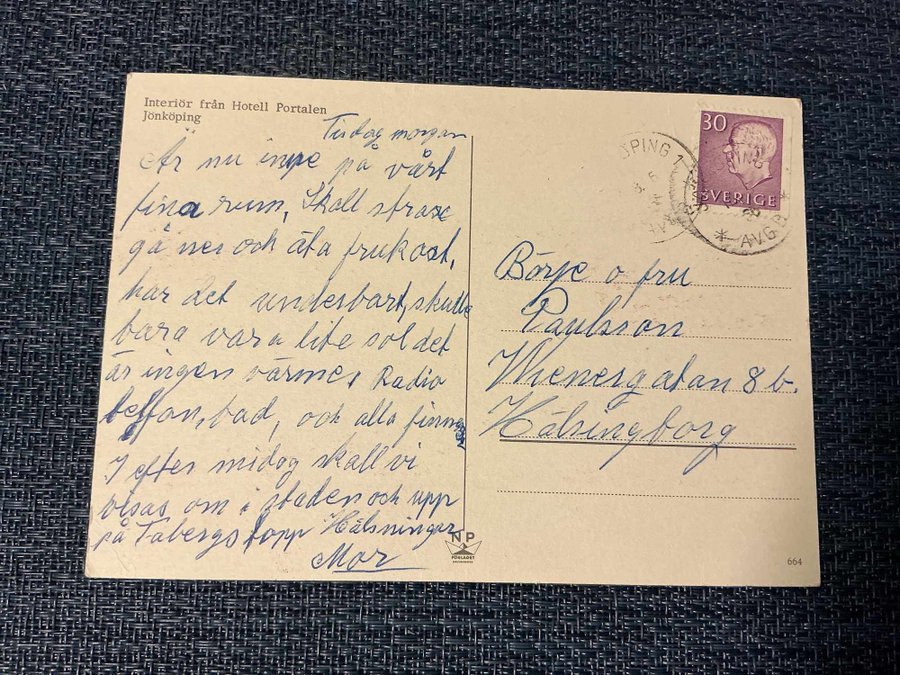 Interiör från Hotell Portalen
Jönköping
Tisdag morgan
Är nu inne på vårt
fina rum, Skall strax
gå ner och äta frukost,
har det underbart, skulle
bara vara lite sol det
är ingen värme, Radio
telfon, bad, och alla finne
I efter midag skall vi
visas om i staden och upp
på Tabergs topp Hälsningar
Mor
NP
FÖRLAGET
664
ÖPING 1
30
SVERIGE
* AVG *
Börje o fru
Paulsson
Wienergatan 8 b.
Hälsingborg